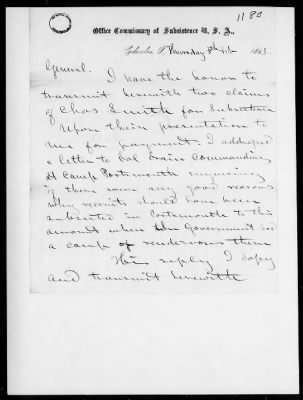 1180
Office Commissary of Subsistence U. S. A.,
Columbus, O. Thursday 8th 1863.
General. I have the honor to
transmit herewith two claims
of Chas Smith for Subsistence
Upon their presentation to
me for payment, I addressed
a letter to Col Crain Commanding
at Camp Portsmouth enquiring
if there were any good reasons
why recruits should have been
subsisted in Portsmouth to this
amount when the Government had
a camp of rendezvous there
His reply I copy
and transmit herewith